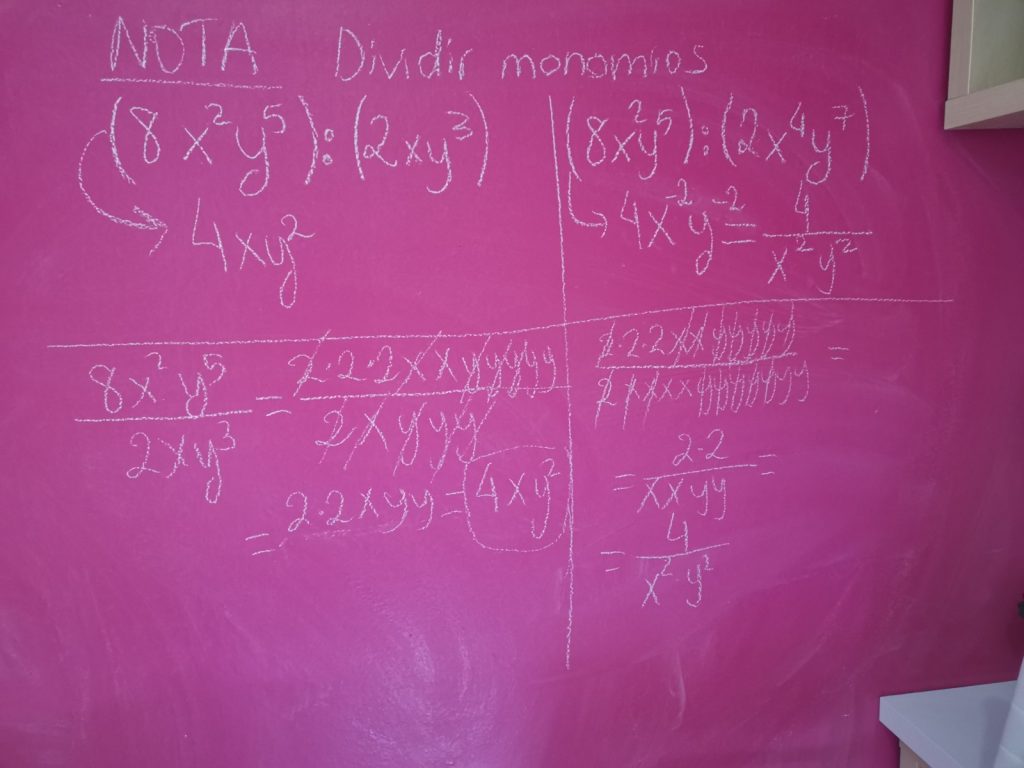 NOTA Dividir monomios
(8x²y⁵):(2xy³)
4xy²
(8x²y⁵):(2x⁴y⁷)
4x⁻²y⁻² = 4/(x²y²)
8x²y⁵/2xy³ = 2·2·2xxyyyyy/2xyyy
= 2·2xyy = 4xy²
2·2·2xxyyyyy/2xxxxyyyyyyy =
= 2·2/xxyy =
= 4/x²y²